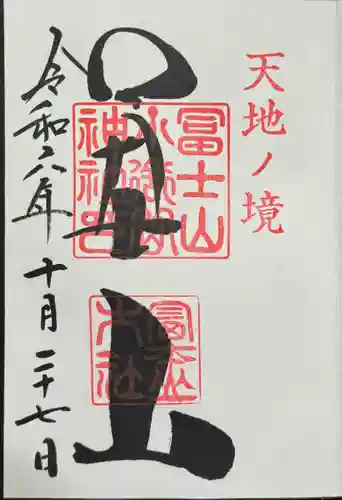 天地ノ境
冨士山
小御嶽
神社印
山
令和六年十月二十七日